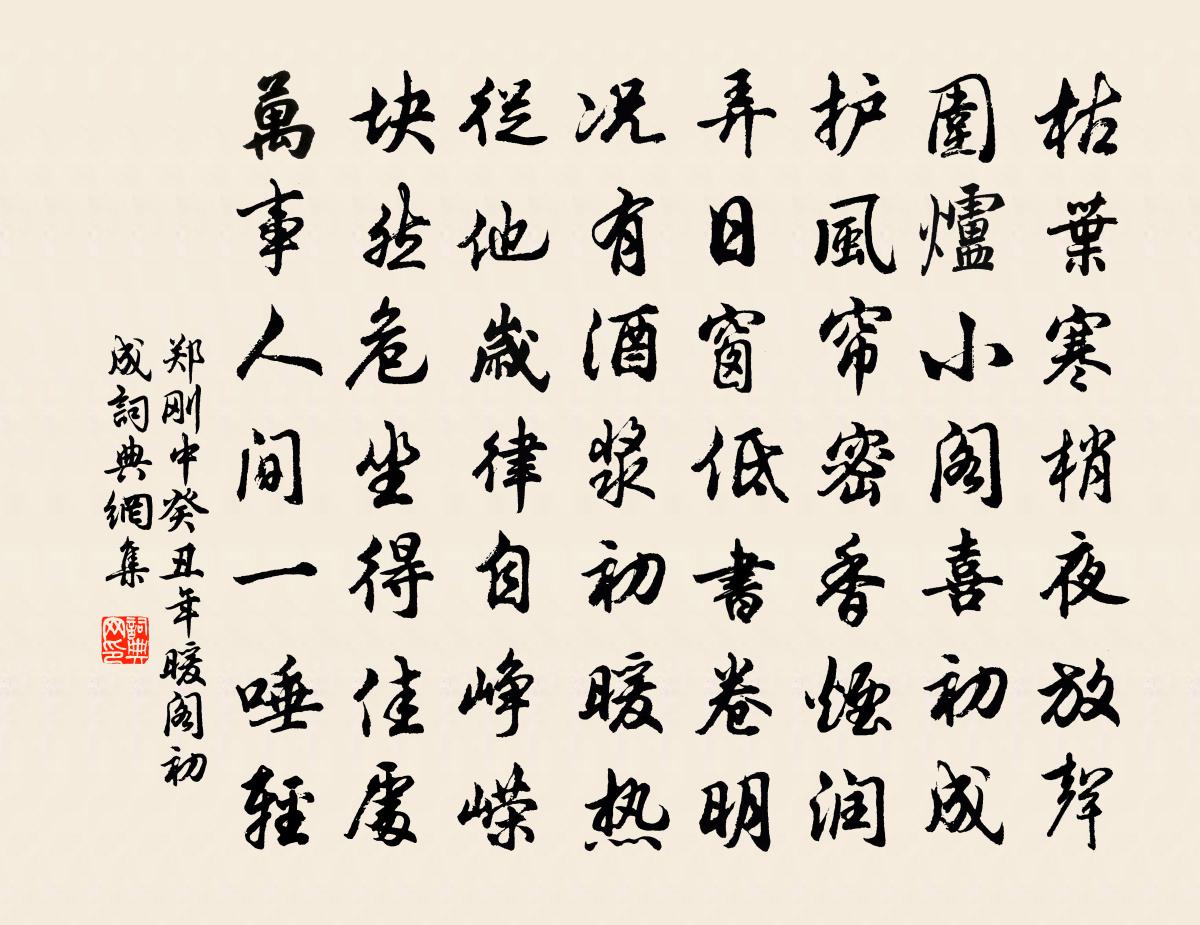 枯葉寒梢夜放聲
圍爐小阁喜初成
护風帘密香煙润
弄日窗低書卷明
况有酒漿初暖热
従他歲律自峥嵘
块然危坐得佳處
萬事人间一唾輕
郑刚中癸丑年暖阁初
成詞典網集
詞典网印